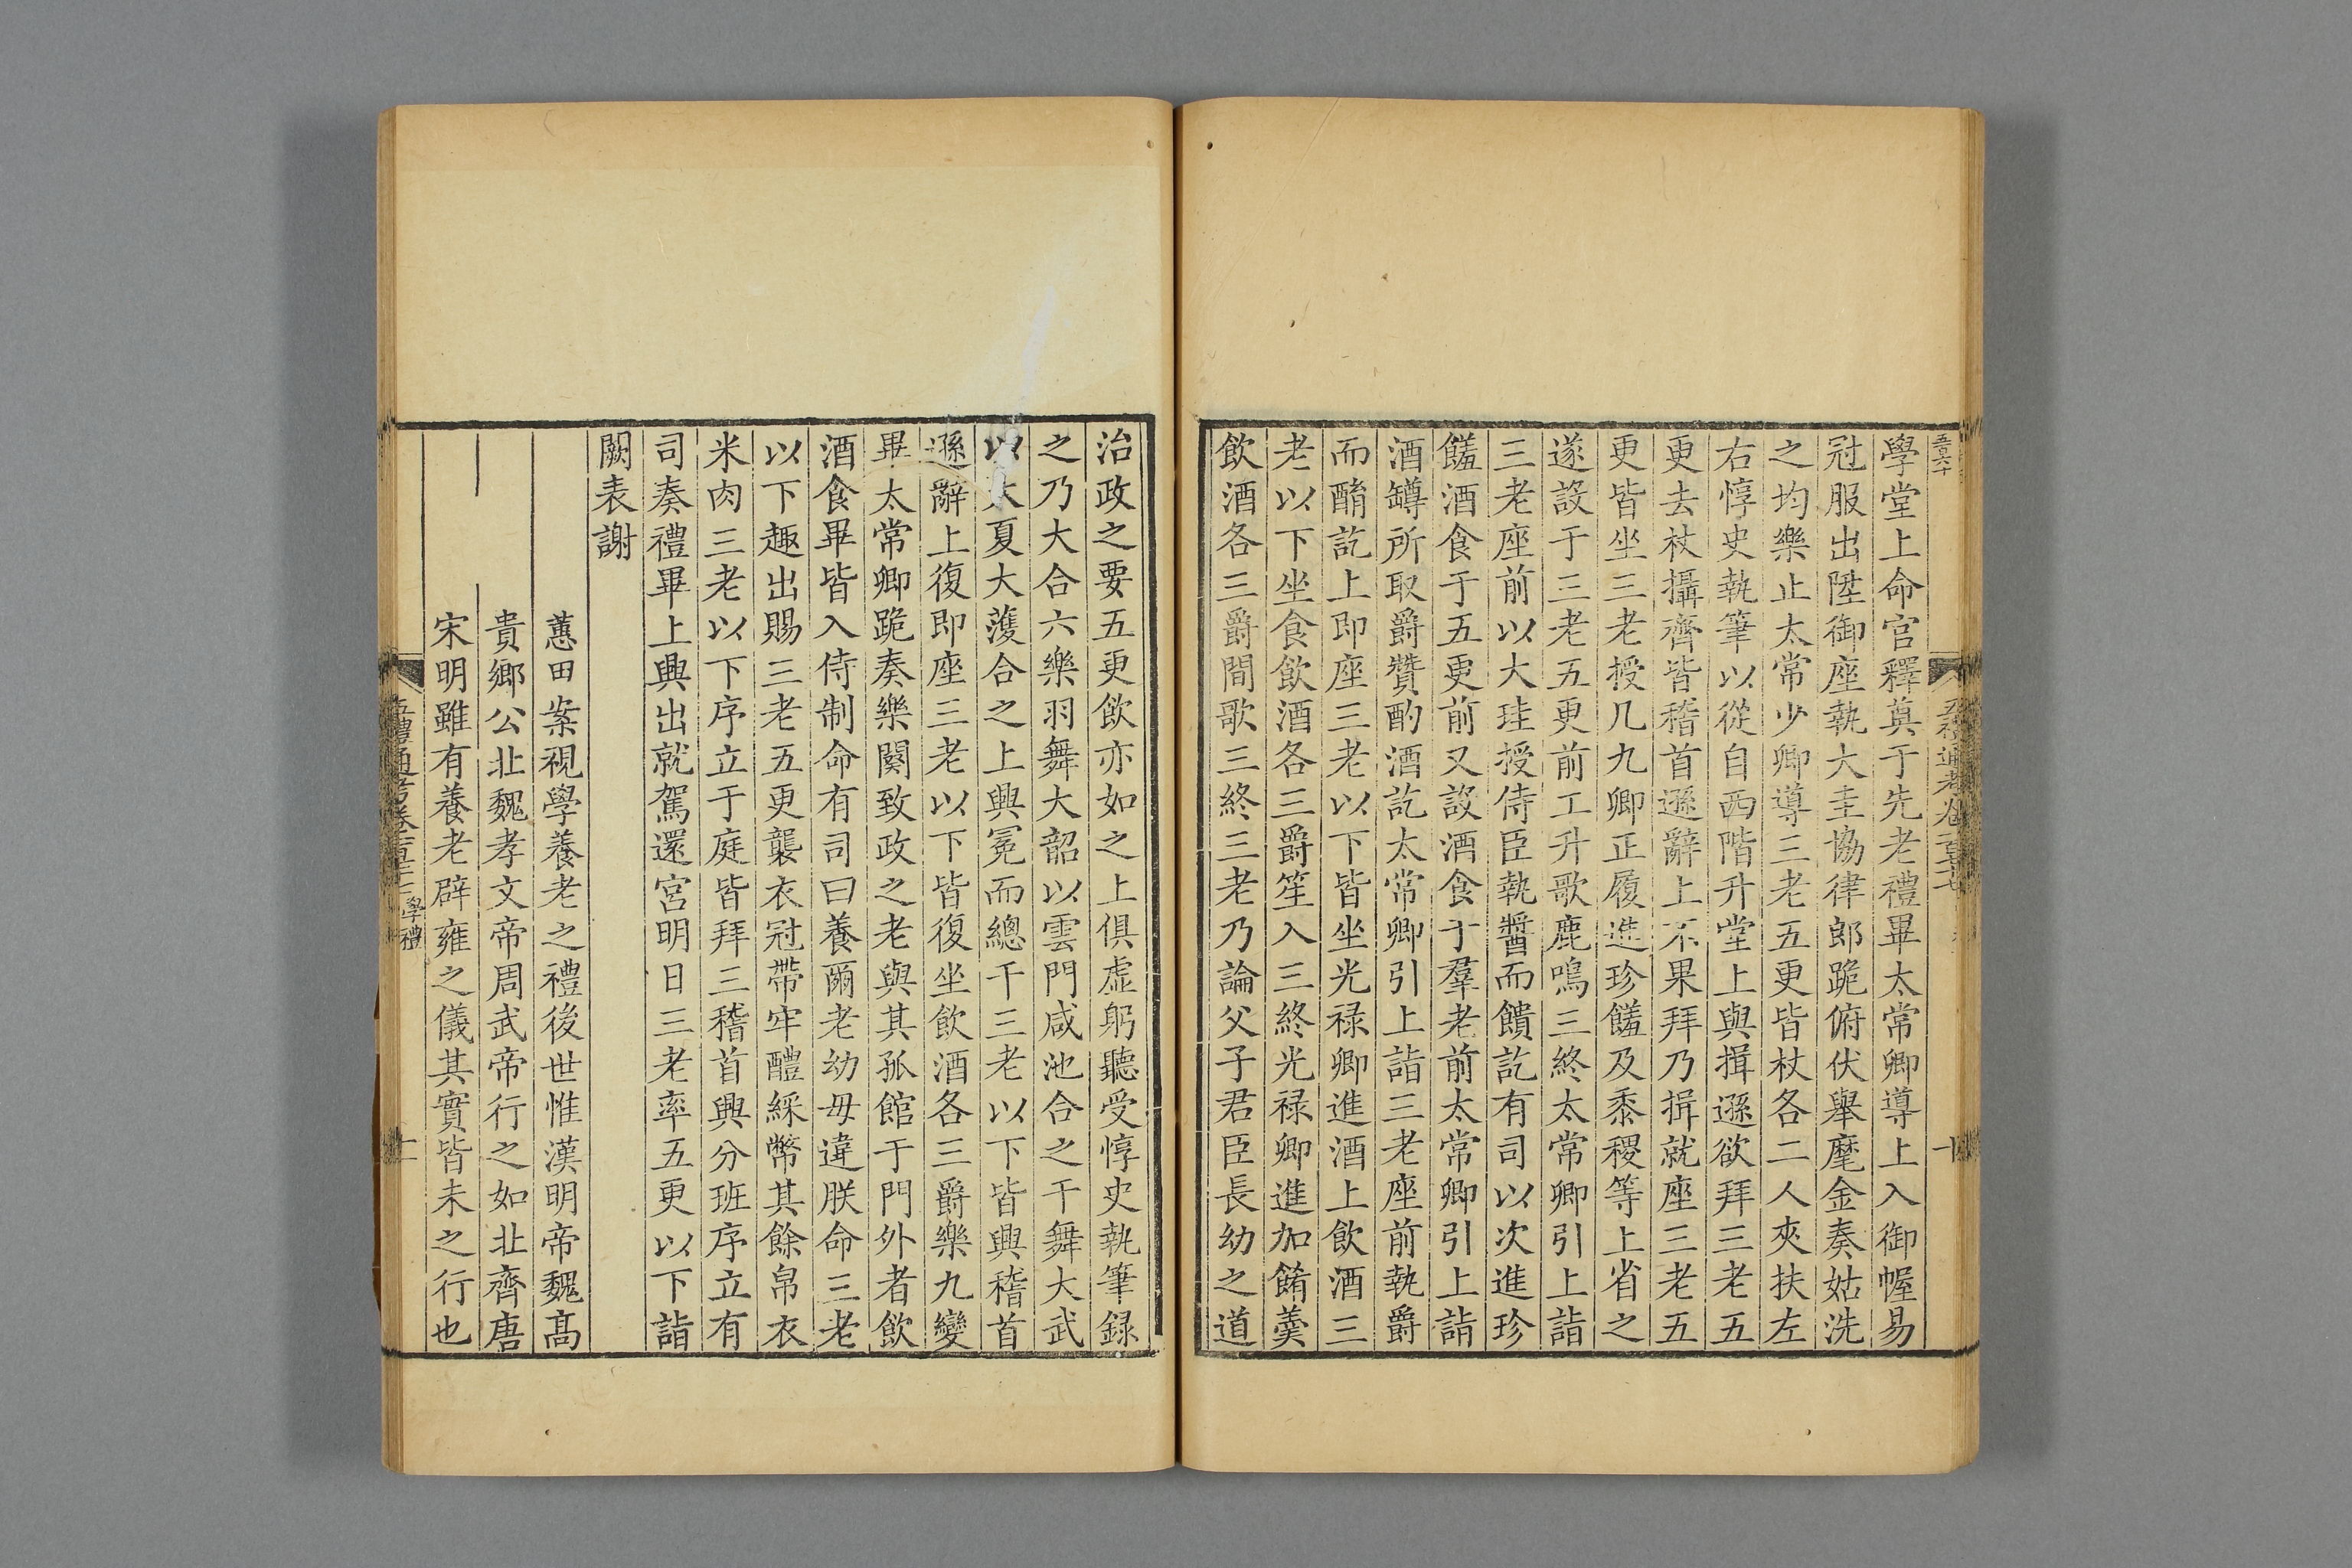 五百六十
五禮通考卷一百七十
十
學堂上命宮釋奠于先老禮畢太常卿導上入御幄易
冠服出陞御座執大圭協律郎跪俯伏舉麾金奏姑洗
之均樂止太常少卿導三老五更皆杖各二人夾扶左
右惇史執筆以從自西階升堂上與揖遜欲拜三老五
更去杖攝齊皆稽首遜辭上不果拜乃揖就座三老五
更皆坐三老授几九卿正履進珍饈及黍稷等上省之
遂設于三老五更前工升歌鹿鳴三終太常卿引上詣
三老座前以大珪授侍臣執醬而饋訖有司以次進珍
饈酒食于五更前又設酒食于羣老前太常卿引上詣
酒罇所取爵贊酌酒訖太常卿引上詣三老座前執爵
而酳訖上即座三老以下皆坐光禄卿進酒上飲酒三
老以下坐食飲酒各三爵笙入三終光禄卿進加餚羹
飲酒各三爵間歌三終三老乃論父子君臣長幼之道
治政之要五更飲亦如之上俱虛躬聽受惇史執筆録
之乃大合六樂羽舞大韶以雲門咸池合之干舞大武
以大夏大濩合之上興冕而總干三老以下皆興稽首
遜辭上復即座三老以下皆復坐飲酒各三爵樂九變
畢太常卿跪奏樂闋致政之老與其孤館于門外者飲
酒食畢皆入侍制命有司曰養爾老幼毋違朕命三老
以下趣出賜三老五更襲衣冠帶牢醴綵幣其餘帛衣
米肉三老以下序立于庭皆拜三稽首興分班序立有
司奏禮畢上興出就駕還宮明日三老率五更以下詣
闕表謝
蕙田案視學養老之禮後世惟漢明帝魏高
貴鄉公北魏孝文帝周武帝行之如北齊唐
宋明雖有養老辟雍之儀其實皆未之行也
五禮通考卷
學禮
十一